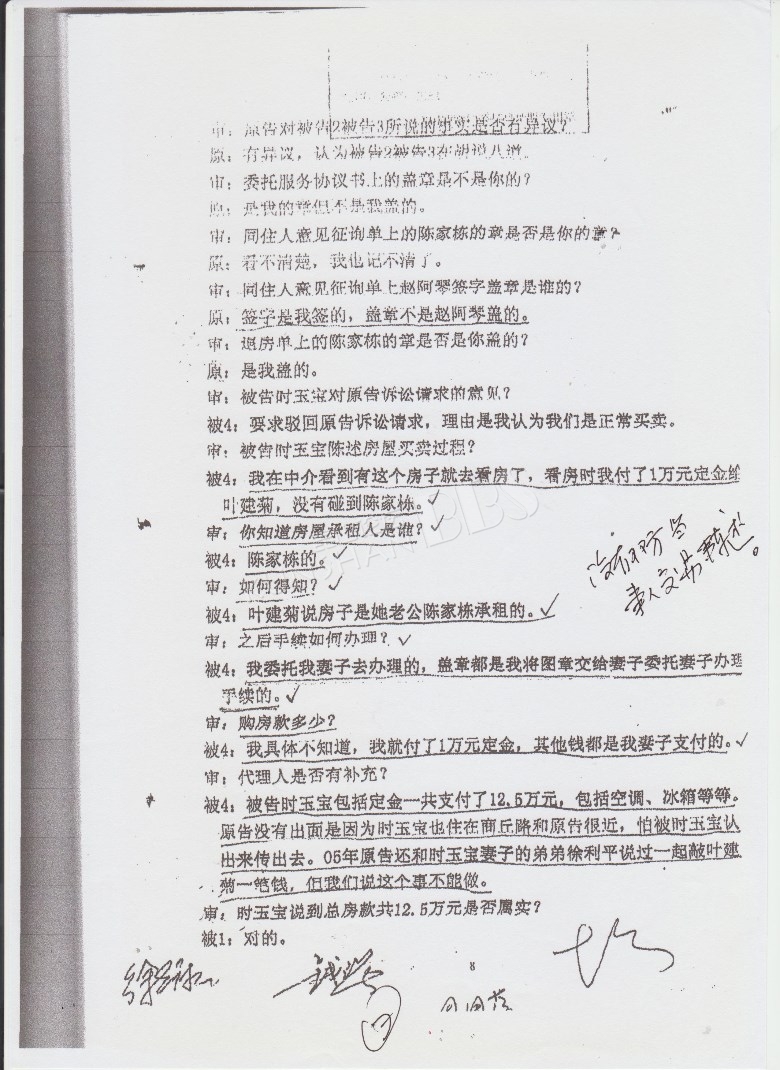 审：原告对被告2被告3所说的事实是否有异议？
原：有异议，认为被告2被告3在胡说八道。
审：委托服务协议书上的盖章是不是你的？
原：是我的章但不是我盖的。
审：同住人意见征询单上的陈家栋的章是否是你的章？
原：看不清楚，我也记不清了。
审：同住人意见征询单上赵阿琴签字盖章是谁的？
原：签字是我签的，盖章不是赵阿琴盖的。
审：退房单上的陈家栋的章是否是你盖的？
原：是我盖的。
审：被告时玉宝对原告诉讼请求的意见？
被4：要求驳回原告诉讼请求，理由是我认为我们是正常买卖。
审：被告时玉宝陈述房屋买卖过程？
被4：我在中介看到有这个房子就去看房了，看房时我付了1万元定金给
叶建菊，没有碰到陈家栋。
审：你知道房屋承租人是谁？
被4：陈家栋的。
审：如何得知？
被4：叶建菊说房子是她老公陈家栋承租的。
审：之后手续如何办理？
被4：我委托我妻子去办理的，盖章都是我将图章交给妻子委托妻子办理
手续的。
审：购房款多少？
被4：我具体不知道，我就付了1万元定金，其他钱都是我妻子支付的。
审：代理人是否有补充？
被4：被告时玉宝包括定金一共支付了12.5万元，包括空调、冰箱等等。
原告没有出面是因为时玉宝也住在商丘路和原告很近，怕被时玉宝认
出来传出去。05年原告还和时玉宝妻子的弟弟徐利平说过一起敲叶建
菊一笔钱，但我们说这个事不能做。
审：时玉宝说到总房款共12.5万元是否属实？
被1：对的。
8